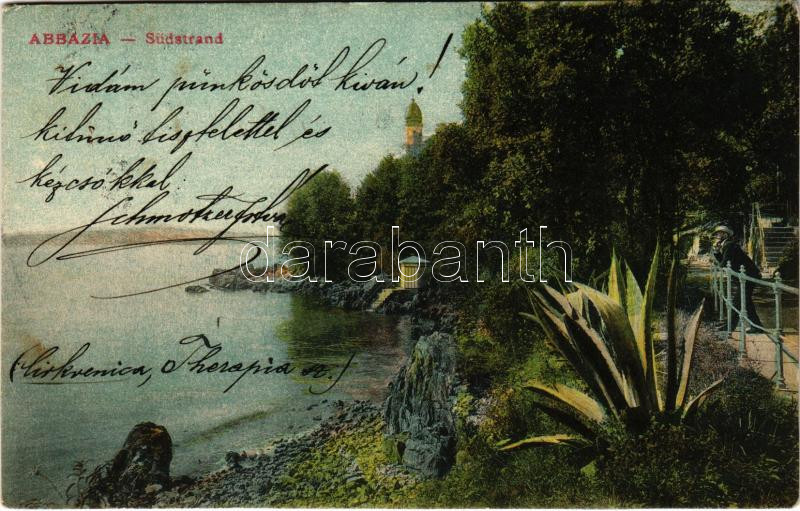 ABBÁZIA — Südstrand
Vidám pünkösdöt kíván!
kitünő tisztelettel és
kézcsókkal:
Schmotzer István
darabanth
(Cirkvenica, Therapia sz.)